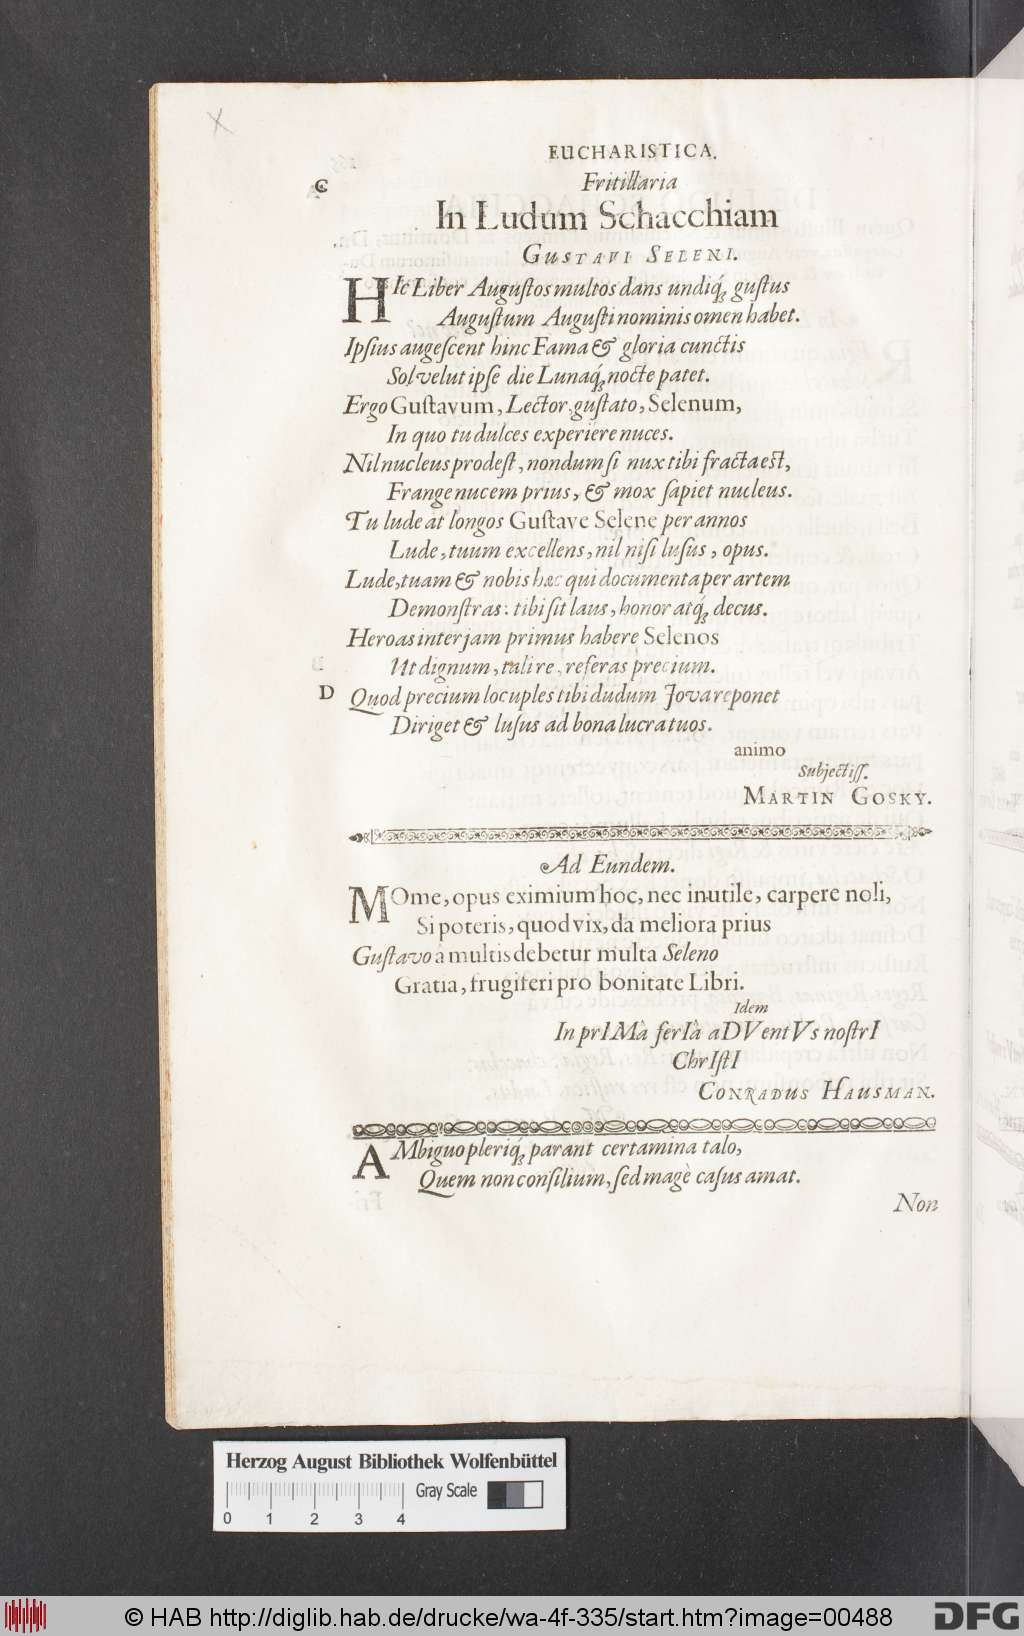 EUCHARISTICA.
Fritillaria
C
In Ludum Schacchiam
GUSTAVI SELENI.
HIc Liber Auguſtos multos dans undiq́ꝫ guſtus
Auguſtum Auguſti nominis omen habet.
Ipſius augeſcent hinc Fama & gloria cunctis
Sol velut ipſe die Lunaq́ꝫ nocte patet.
Ergo Guſtavum, Lector, guſtato, Selenum,
In quo tu dulces experiere nuces.
Nil nucleus prodeſt, nondum ſi nux tibi fracta eſt,
Frange nucem prius, & mox ſapiet nucleus.
Tu lude at longos Guſtave Selene per annos
Lude, tuum excellens, nil niſi luſus, opus.
Lude, tuam & nobis hæc qui documenta per artem
Demonſtras: tibi ſit laus, honor atq́ꝫ decus.
Heroas inter jam primus habere Selenos
Ut dignum, tali re, referas precium.
D
Quod precium locuples tibi dudum Jova reponet
Diriget & luſus ad bona lucra tuos.
animo
Subjectiſſ.
MARTIN GOSKY.
Ad Eundem.
MOme, opus eximium hoc, nec inutile, carpere noli,
Si poteris, quod vix, da meliora prius
Guſtavo â multis debetur multa Seleno
Gratia, frugiferi pro bonitate Libri.
Idem
In prIMà ferIà aDVentVs noſtrI
ChrIſtI
CONRADUS HAUSMAN.
AMbiguo pleriq́ꝫ parant certamina talo,
Quem non conſilium, ſed magè caſus amat.
Non
Herzog August Bibliothek Wolfenbüttel
Gray Scale
0 1 2 3 4
© HAB http://diglib.hab.de/drucke/wa-4f-335/start.htm?image=00488
DFG